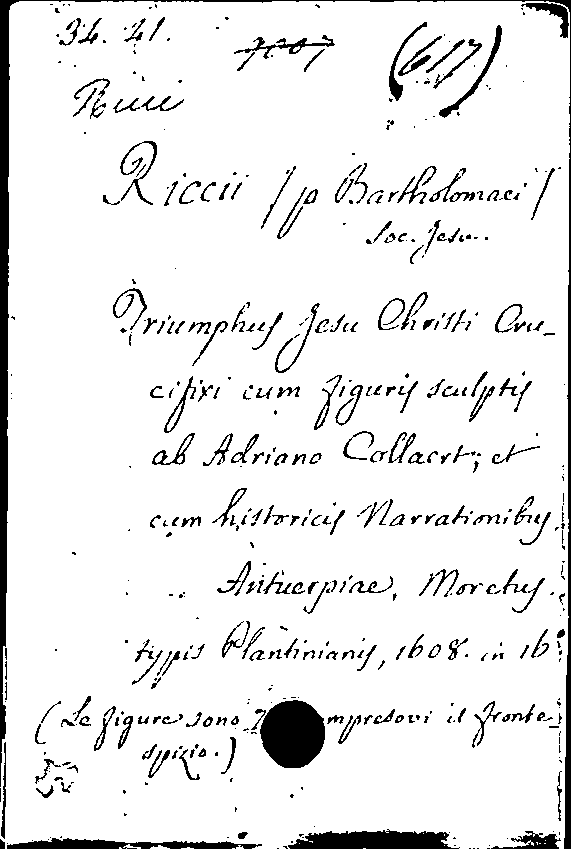 34. 41.
7007 (617)
Ricci
Riccii /p Bartholomaei/
Soc. Jesu.
Triumphus Jesu Christi Cru-
cifixi cum figuris sculptis
ab Adriano Collaert; et
cum historicis Narrationibus.
Antuerpiae, Moretus.
typis Plantinianis, 1608. in 16°
(Le figure sono 7 mpresovi il fronte-
spizio.)